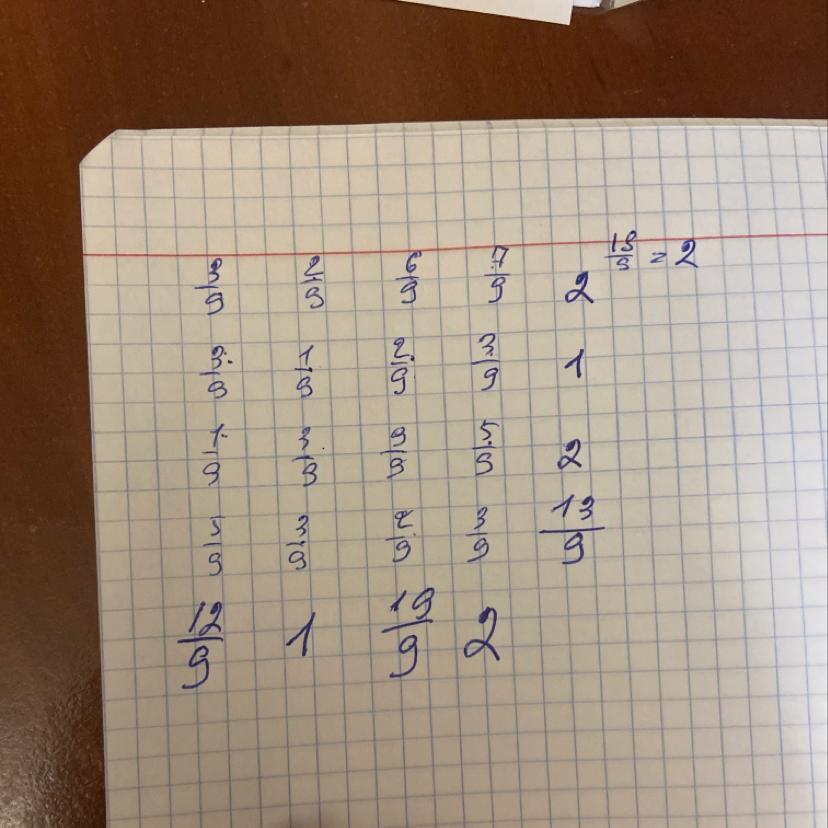 3/9 2/9 6/9 7/9 2 18/9 = 2
3/9 1/9 2/9 3/9 1
1/9 3/9 9/9 5/9 2
5/9 3/9 2/9 3/9 13/9
12/9 1 19/9 2